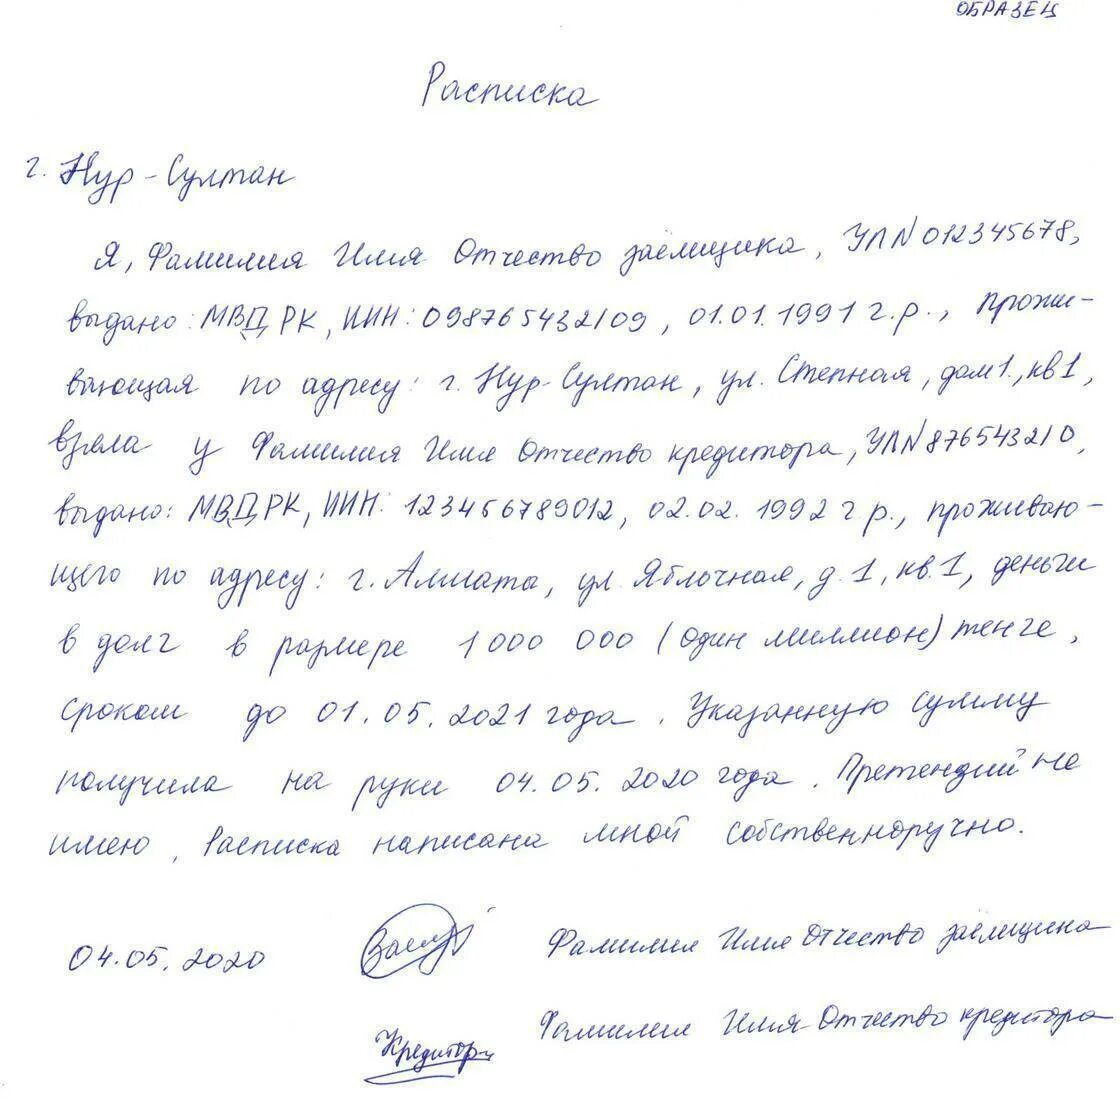 ОБРАЗЕЦ
Расписка
г. Нур-Султан
Я, Фамилия Имя Отчество заёмщика, УЛ N 012345678,
выдано: МВД РК, ИИН: 098765432109, 01.01.1991 г.р., прожи-
вающая по адресу: г. Нур-Султан, ул. Степная, дом 1, кв 1,
взяла у Фамилия Имя Отчество кредитора, УЛ N 876543210,
выдано: МВД РК, ИИН: 123456789012, 02.02.1992 г.р., проживаю-
щего по адресу: г. Алмата, ул. Яблочная, д. 1, кв. 1, деньги
в долг в размере 1 000 000 (один миллион) тенге,
сроком до 01.05.2021 года. Указанную сумму
получила на руки 04.05.2020 года. Претензий не
имею, Расписка написана мной собственноручно.
04.05.2020 Заемщ Фамилия Имя Отчество заёмщика
Кредитор Фамилия Имя Отчество кредитора